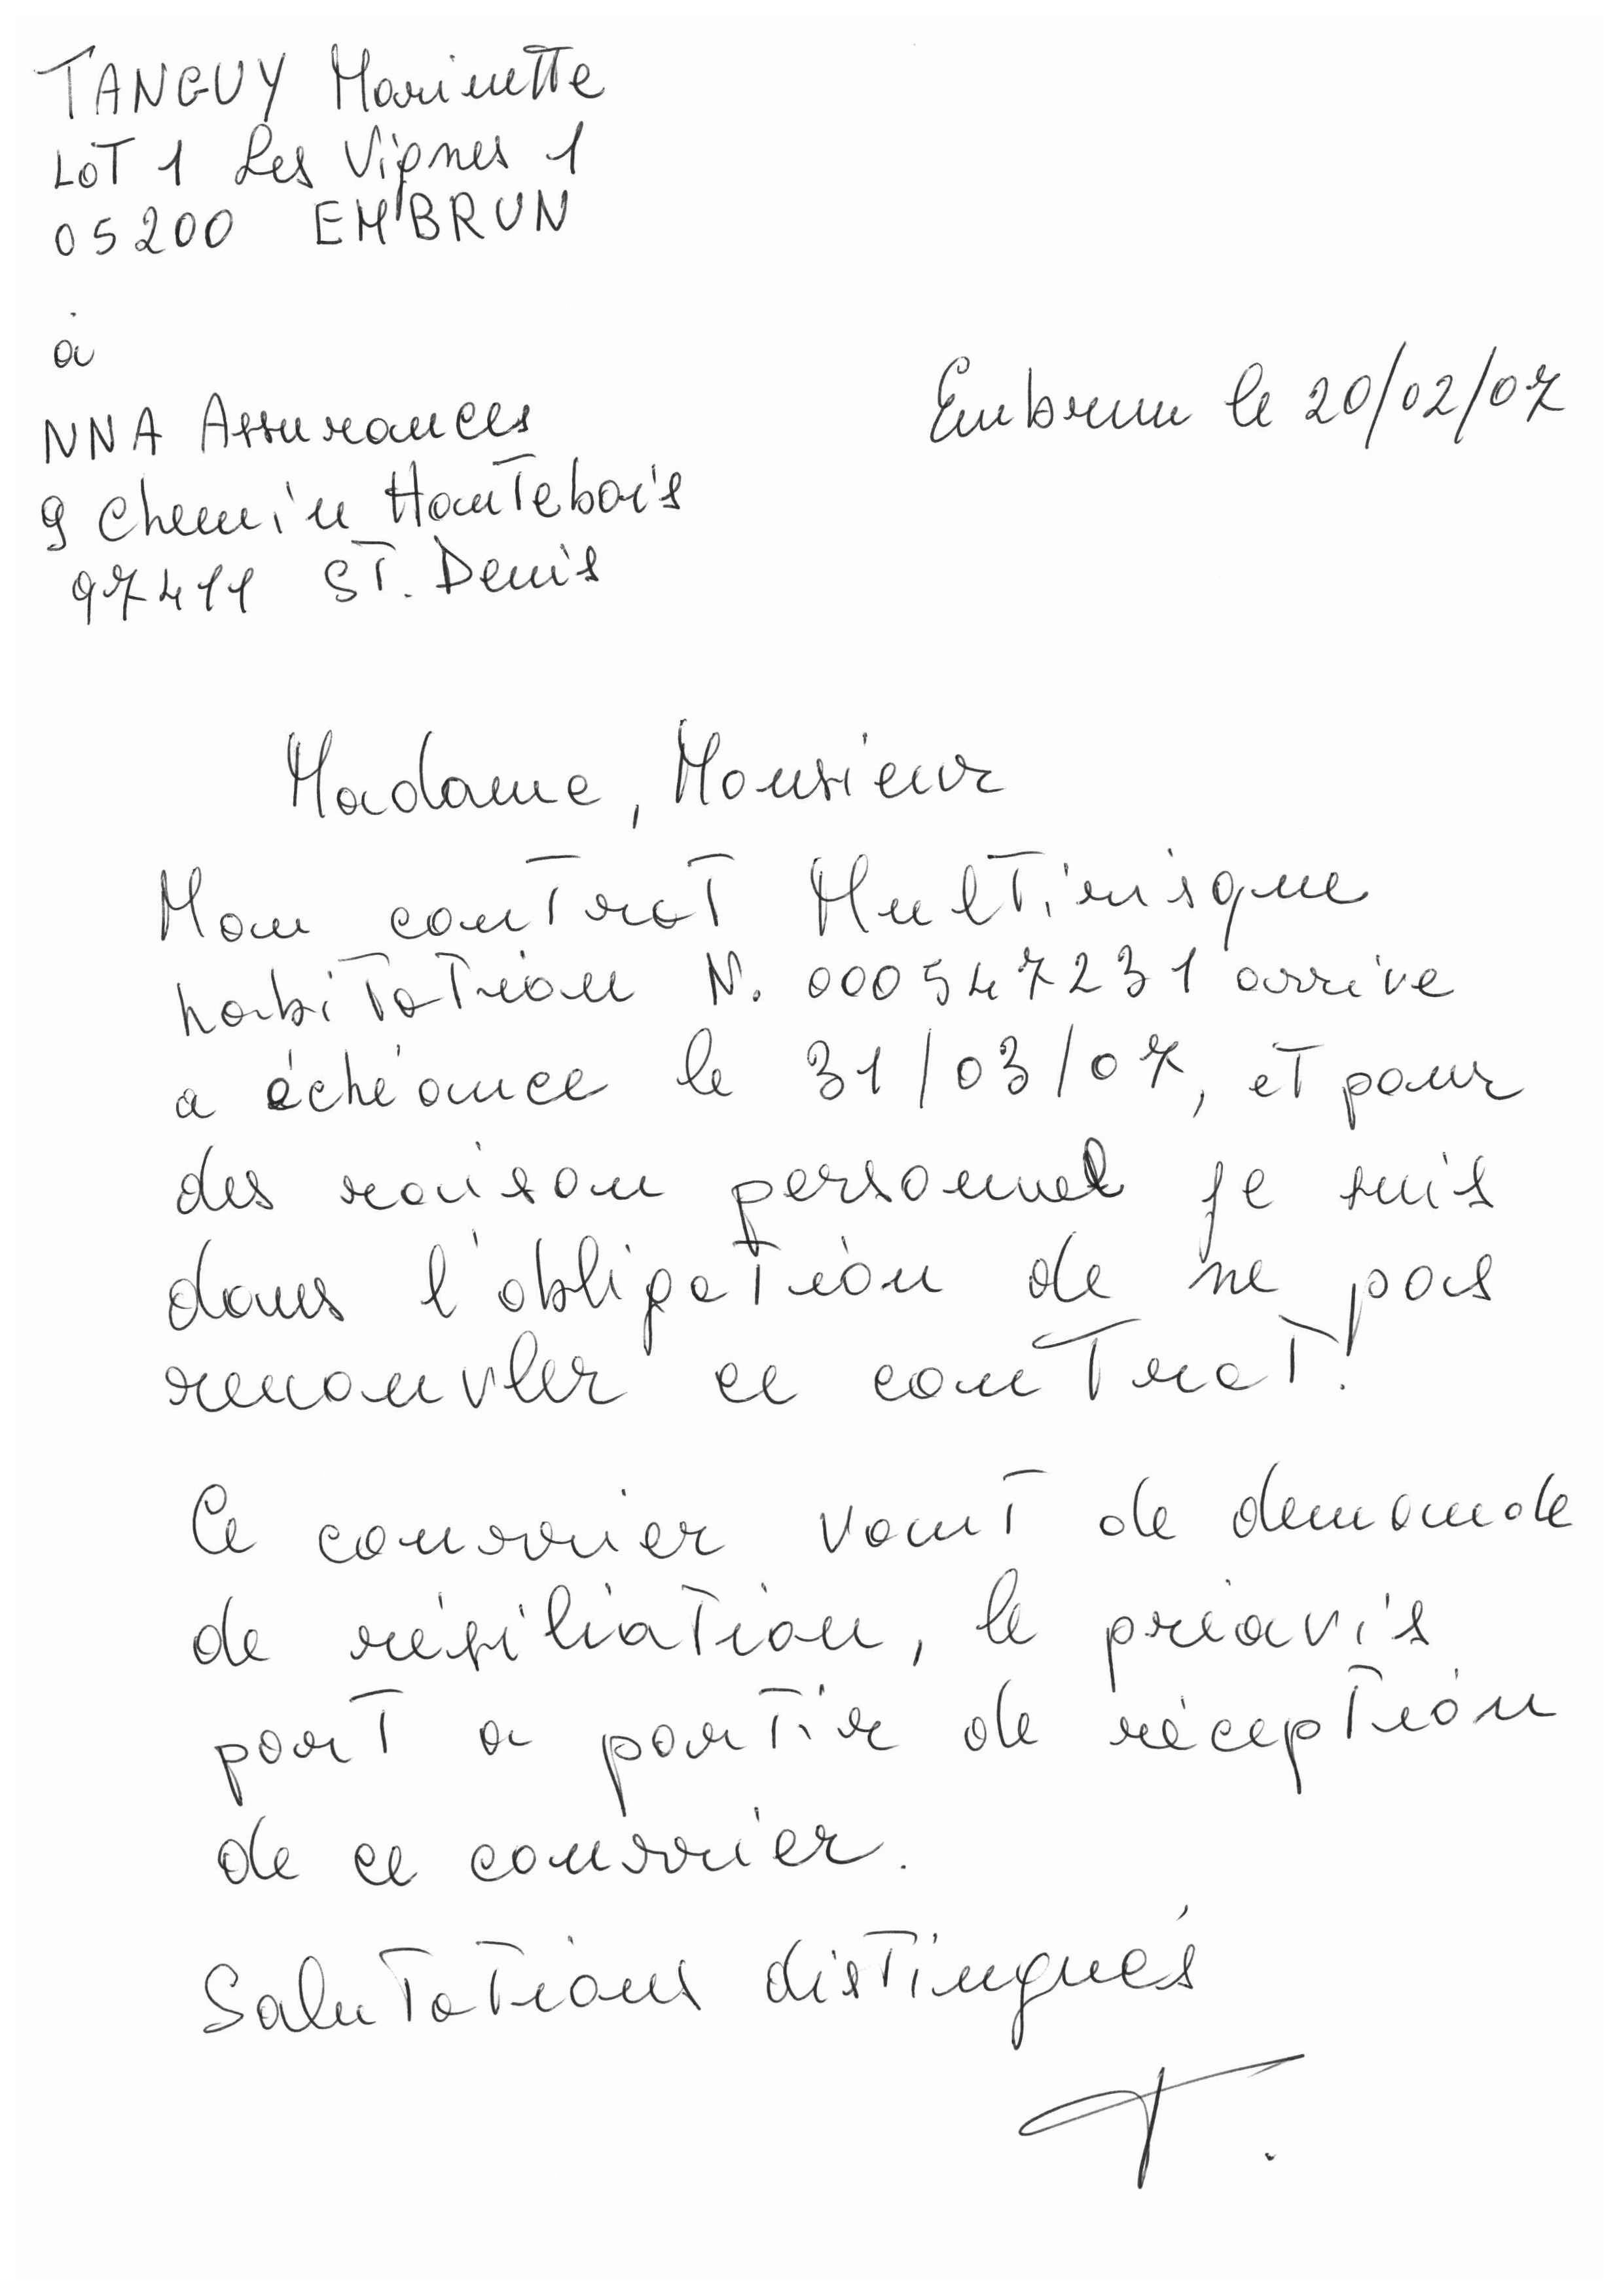 TANGUY Marinette
LOT 1 Les Vignes 1
05200 EMBRUN
à
Embrun le 20/02/07
NNA Assurances
9 chemin Hautebois
97411 ST. Denis
Madame, Monsieur
Mon contrat Multirisque
habitation N. 000547231 arrive
a échéance le 31/03/07, et pour
des raison personnel je suis
dans l'obligation de ne pas
renouvler ce contrat.
Ce courrier vaut de demande
de résiliation, le préavis
part a partir de réception
de ce courrier.
Salutations distingués
T.